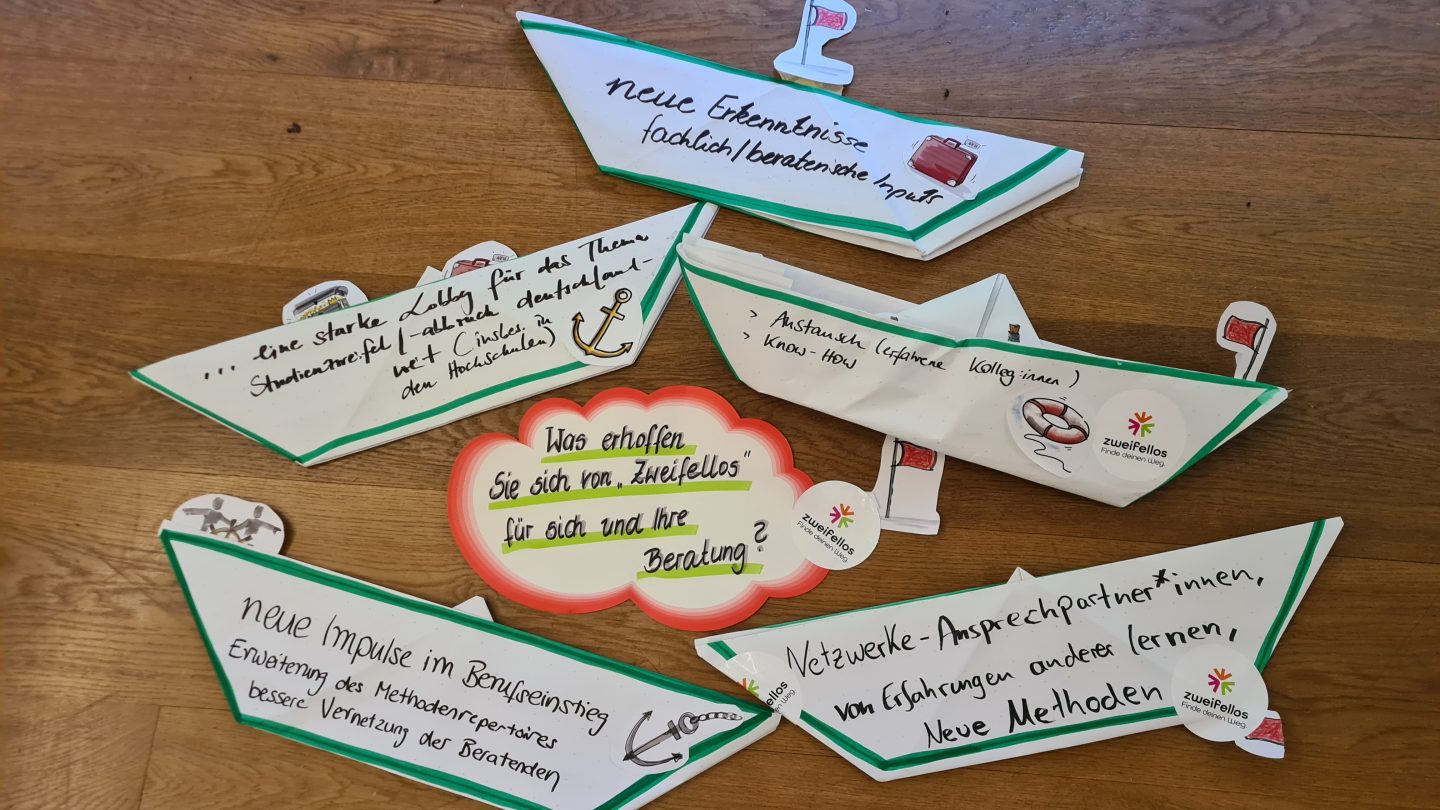 neue Erkenntnisse
fachlich/beraterische Inputs
... eine starke Lobby für das Thema
Studienzweifel/-abbruch deutschland-
weit (insbes. in
den Hochschulen)
> Austausch (erfahrene Kolleg:innen)
> Know-How
zweifellos
Finde deinen Weg.
Was erhoffen
Sie sich von „Zweifellos"
für sich und Ihre
Beratung?
zweifellos
Finde deinen Weg.
neue Impulse im Berufseinstieg
Erweiterung des Methodenrepertoires
bessere Vernetzung der Beratenden
Netzwerke-Ansprechpartner*innen,
von Erfahrungen anderer lernen,
Neue Methoden
zweifellos
Finde deinen Weg.
ellos